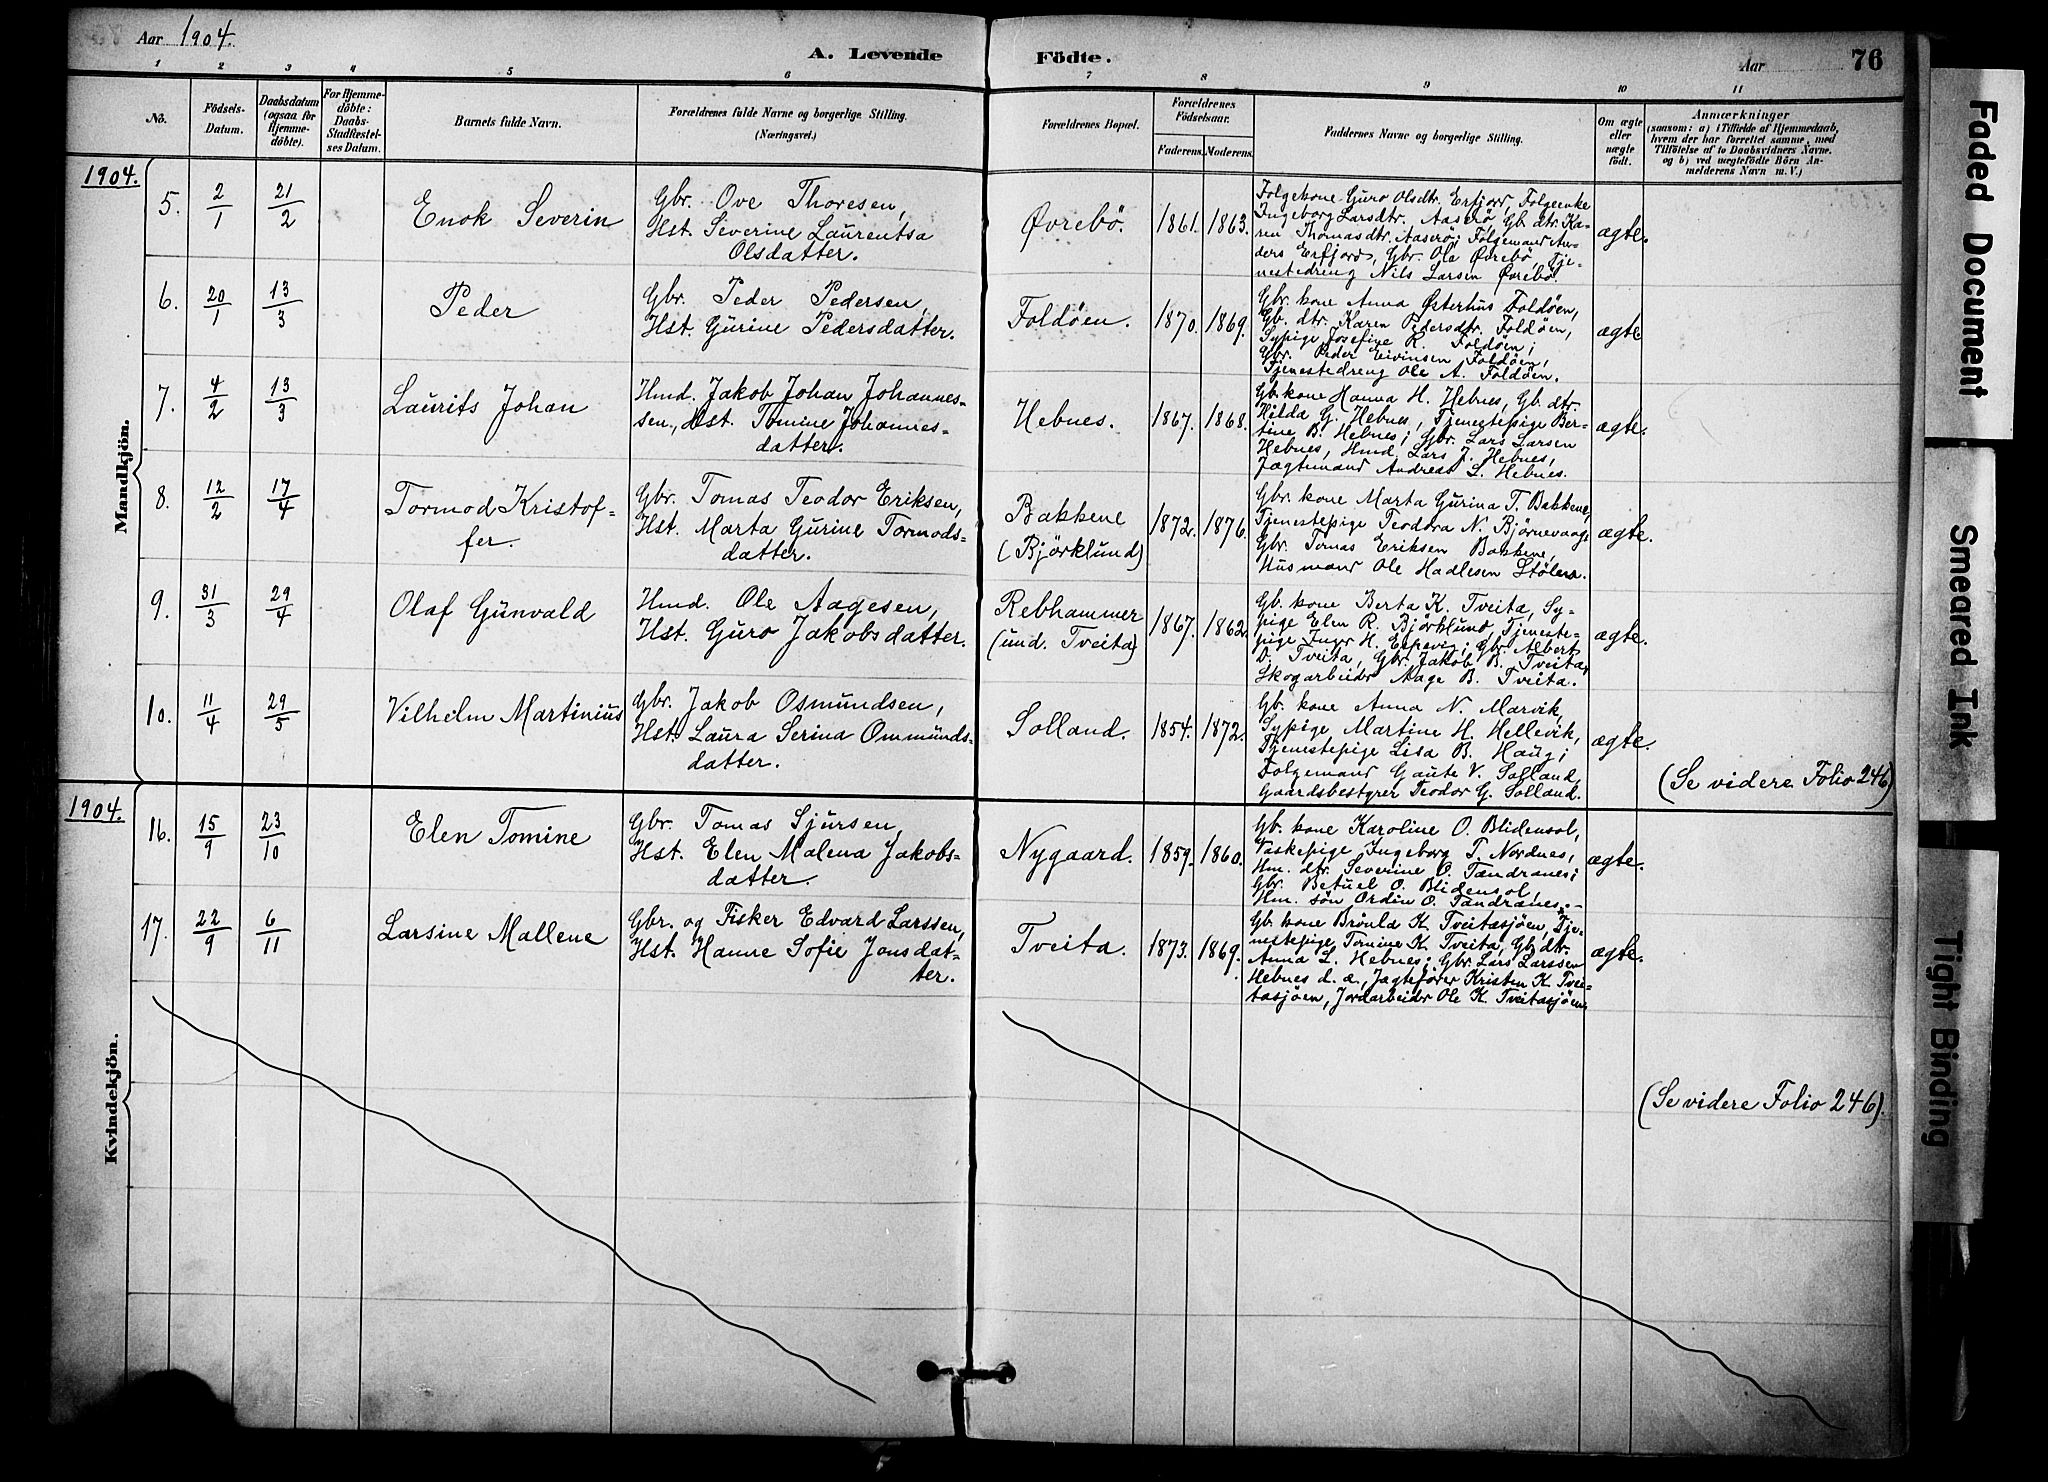 Aar 1904.
A. Levende
Födte.
Aar
76
1 2 3 4 5 6 7 8 9 10 11
No.
Födsels-
Datum.
Daabsdatum
(ogsaa for
Hjemme-
döbte).
For Hjemme-
döbte:
Daabs-
Stadfæstel-
ses Datum.
Barnets fulde Navn.
Forældrenes fulde Navne og borgerlige Stilling.
(Næringsvei.)
Forældrenes Bopæl.
Forældrenes
Födselsaar.
Faderens. Moderens.
Faddernes Navne og borgerlige Stilling.
Om ægte
eller
uægte
födt.
Anmærkninger
(saasom: a) i Tilfælde af Hjemmedaab,
hvem der har forrettet samme, med
Tilföielse af to Daabsvidners Navne.
og b) ved uægtefödte Börn An-
melderens Navn m. V.)
1904.
Mandkjön.
5. 2/1 21/2
Enok Severin
Gbr. Ove Thoresen,
Hst. Severine Laurentsa
Olsdatter.
Øvrebö.
1861. 1863.
Folgekone Guro Olsdtr. Erfjord, Folgeenke
Ingeborg Larsdtr. Aaserö, Gb. dtr. Ka-
ren Thomasdtr. Aaserö; Folgemand An-
ders Erfjord, Gbr. Ole Øvrebö, Tje-
nestedreng Nils Larsen Øvrebö.
ægte.
6. 20/1 13/3
Peder
Gbr. Peder Pedersen,
Hst. Gurine Pedersdatter.
Foldöen.
1870. 1869.
Gbr. kone Anna Østerhus Foldöen,
Gb. dtr. Karen Pedersdtr. Foldöen,
Sypige Josefine R. Foldöen;
Gbr. Peder Eivinsen Foldöen,
Tjenestedreng Ole A. Foldöen.
ægte
7. 4/2 13/3
Laurits Johan
Hmd. Jakob Johan Johannes-
sen, Hst. Tomine Johannes-
datter.
Hebnes.
1867. 1868.
Gb. kone Hanna H. Hebnes, Gb. dtr.
Hilda G. Hebnes, Tjenestepige Ber-
tine B. Hebnes; Gbr. Lars Larsen
Hebnes, Hmd. Lars J. Hebnes,
Jagtmand Andreas L. Hebnes.
ægte.
8. 12/2 17/4
Tormod Kristof-
fer.
Gbr. Tomas Teodor Eriksen,
Hst. Marta Gurine Tormods-
datter.
Bakkene
(Björklund)
1872. 1876.
Gbr. kone Marta Gurina T. Bakkene,
Tjenestepige Teodora N. Björnevaage
Gbr. Tomas Eriksen Bakkene,
Husmand Ole Hadlesen Stölen.
ægte.
9. 31/3 29/4
Olaf Gunvald
Hmd. Ole Aagesen,
Hst. Guro Jakobsdatter.
Rebhammer
(und. Tveita)
1867. 1862.
Gb. kone Berta K. Tveita, Sy-
pige Elen R. Björklund, Tjeneste-
pige Inger H. Espevig; Gbr. Albert
O. Tveita, Gbr. Jakob B. Tveita,
Skogarbeider Aage B. Tveita.
ægte.
10. 11/4 29/5
Vilhelm Martinius
Gbr. Jakob Osmundsen,
Hst. Laura Serina Ommunds-
datter.
Solland.
1854. 1872.
Gb. kone Anna N. Marvik,
Sypige Martine H. Hellevik,
Tjenestepige Lisa B. Haug;
Folgemand Gaute V. Solland,
Gaardsbestyrer Teodor G. Solland.
ægte.
(Se videre Folio 246)
1904.
Kvindekjön.
16. 15/9 23/10
Elen Tomine
Gbr. Tomas Sjursen,
Hst. Elen Malena Jakobs-
datter.
Nygaard.
1859. 1860.
Gb. kone Karoline O. Blidensol,
Vaskepige Ingeborg T. Nordnes,
Hm. dtr. Severine O. Tandranes;
Gbr. Betuel O. Blidensol,
Hm. sön Ordin O. Tandranes.
ægte.
17. 22/9 6/11
Larsine Mallene
Gbr. og Fisker Edvard Larssen,
Hst. Hanne Sofie Jonsdat-
ter.
Tveita.
1873. 1869.
Gb. kone Brönla K. Tveitasjöen, Tje-
nestepige Tomine K. Tveita, Gb. dtr.
Anna L. Hebnes; Gbr. Lars Larssen
Hebnes d. æ., Jagtefører Kristen K. Tvei-
tasjöen, Jordarbeider Ole K. Tveitasjöen.
ægte.
(Se videre Folio 246).
Faded Document
Smeared Ink
Tight Binding